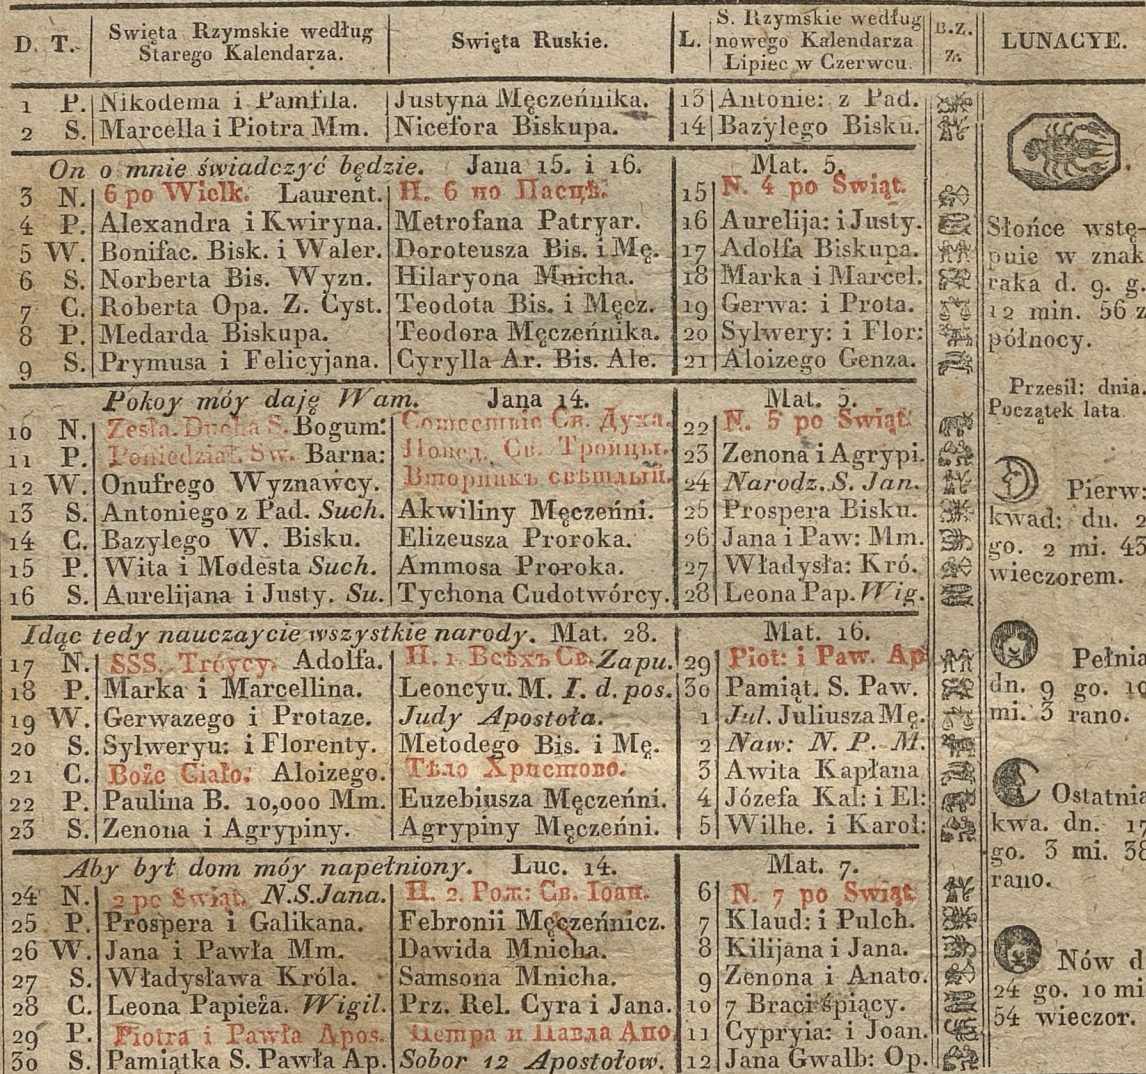 D. T. Swięta Rzymskie według Starego Kalendarza. Swięta Ruskie. L. S. Rzymskie według nowego Kalendarza Lipiec w Czerwcu. B.Z. Zn. LUNACYE.
1 P. Nikodema i Pamfila. Justyna Męczeńnika. 13 Antonie: z Pad.
2 S. Marcella i Piotra Mm. Nicefora Biskupa. 14 Bazylego Bisku.
On o mnie świadczyć będzie. Jana 15. i 16. Mat. 5.
3 N. 6 po Wielk. Laurent. Н. 6 по Пасцѣ. 15 N. 4 po Swiąt.
4 P. Alexandra i Kwiryna. Metrofana Patryar. 16 Aurelija: i Justy.
5 W. Bonifac. Bisk. i Waler. Doroteusza Bis. i Mę. 17 Adolfa Biskupa.
6 S. Norberta Bis. Wyzn. Hilaryona Mnicha. 18 Marka i Marcel.
7 C. Roberta Opa. Z. Cyst. Teodota Bis. i Męcz. 19 Gerwa: i Prota.
8 P. Medarda Biskupa. Teodora Męczeńnika. 20 Sylwery: i Flor:
9 S. Prymusa i Felicyjana. Cyrylla Ar. Bis. Ale. 21 Aloizego Genza.
Pokoy móy daję Wam. Jana 14. Mat. 5.
10 N. Zesła. Ducha S. Bogum: Сошествіе Св. Духа. 22 N. 5 po Swiąt.
11 P. Poniedział. Sw. Barna: Понед. Св. Троицы. 23 Zenona i Agrypi.
12 W. Onufrego Wyznawcy. Вторникъ свѣтлый. 24 Narodz. S. Jan.
13 S. Antoniego z Pad. Such. Akwiliny Męczeńni. 25 Prospera Bisku.
14 C. Bazylego W. Bisku. Elizeusza Proroka. 26 Jana i Paw: Mm.
15 P. Wita i Modesta Such. Ammosa Proroka. 27 Władysła: Kró.
16 S. Aurelijana i Justy. Su. Tychona Cudotwórcy. 28 Leona Pap. Wig.
Idąc tedy nauczaycie wszystkie narody. Mat. 28. Mat. 16.
17 N. SSS. Tróycy. Adolfa. Н. 1 Всѣхъ Св. Zapu. 29 Piot: i Paw. Ap
18 P. Marka i Marcellina. Leoncyu. M. I. d. pos. 30 Pamiąt. S. Paw.
19 W. Gerwazego i Protaze. Judy Apostoła. 1 Jul. Juliusza Mę.
20 S. Sylweryu: i Florenty. Metodego Bis. i Mę. 2 Naw: N. P. M.
21 C. Boże Ciało. Aloizego. Тѣло Христово. 3 Awita Kapłana
22 P. Paulina B. 10,000 Mm. Euzebiusza Męczeńni. 4 Józefa Kal: i El:
23 S. Zenona i Agrypiny. Agrypiny Męczeńni. 5 Wilhe. i Karol:
Aby był dom móy napełniony. Luc. 14. Mat. 7.
24 N. 2 po Swiąt. N.S.Jana. Н. 2. Рож: Св. Іоан. 6 N. 7 po Swiąt.
25 P. Prospera i Galikana. Febronii Męczeńnicz. 7 Klaud: i Pulch.
26 W. Jana i Pawła Mm. Dawida Mnicha. 8 Kilijana i Jana.
27 S. Władysława Króla. Samsona Mnicha. 9 Zenona i Anato.
28 C. Leona Papieża. Wigil. Prz. Rel. Cyra i Jana. 10 7 Braci śpiący.
29 P. Piotra i Pawła Apos. Петра и Павла Апо. 11 Cypryia: i Joan.
30 S. Pamiątka S. Pawła Ap. Sobor 12 Apostołow. 12 Jana Gwalb: Op.
Słońce wstę-
puie w znak
raka d. 9. g.
12 min. 56 z
północy.
Przesil: dnia.
Początek lata
Pierw:
kwad: dn. 2
go. 2 mi. 43
wieczorem.
Pełnia
dn. 9 go. 10
mi. 3 rano.
Ostatnia
kwa. dn. 17
go. 3 mi. 38
rano.
Nów d
24 go. 10 mi
54 wieczor.